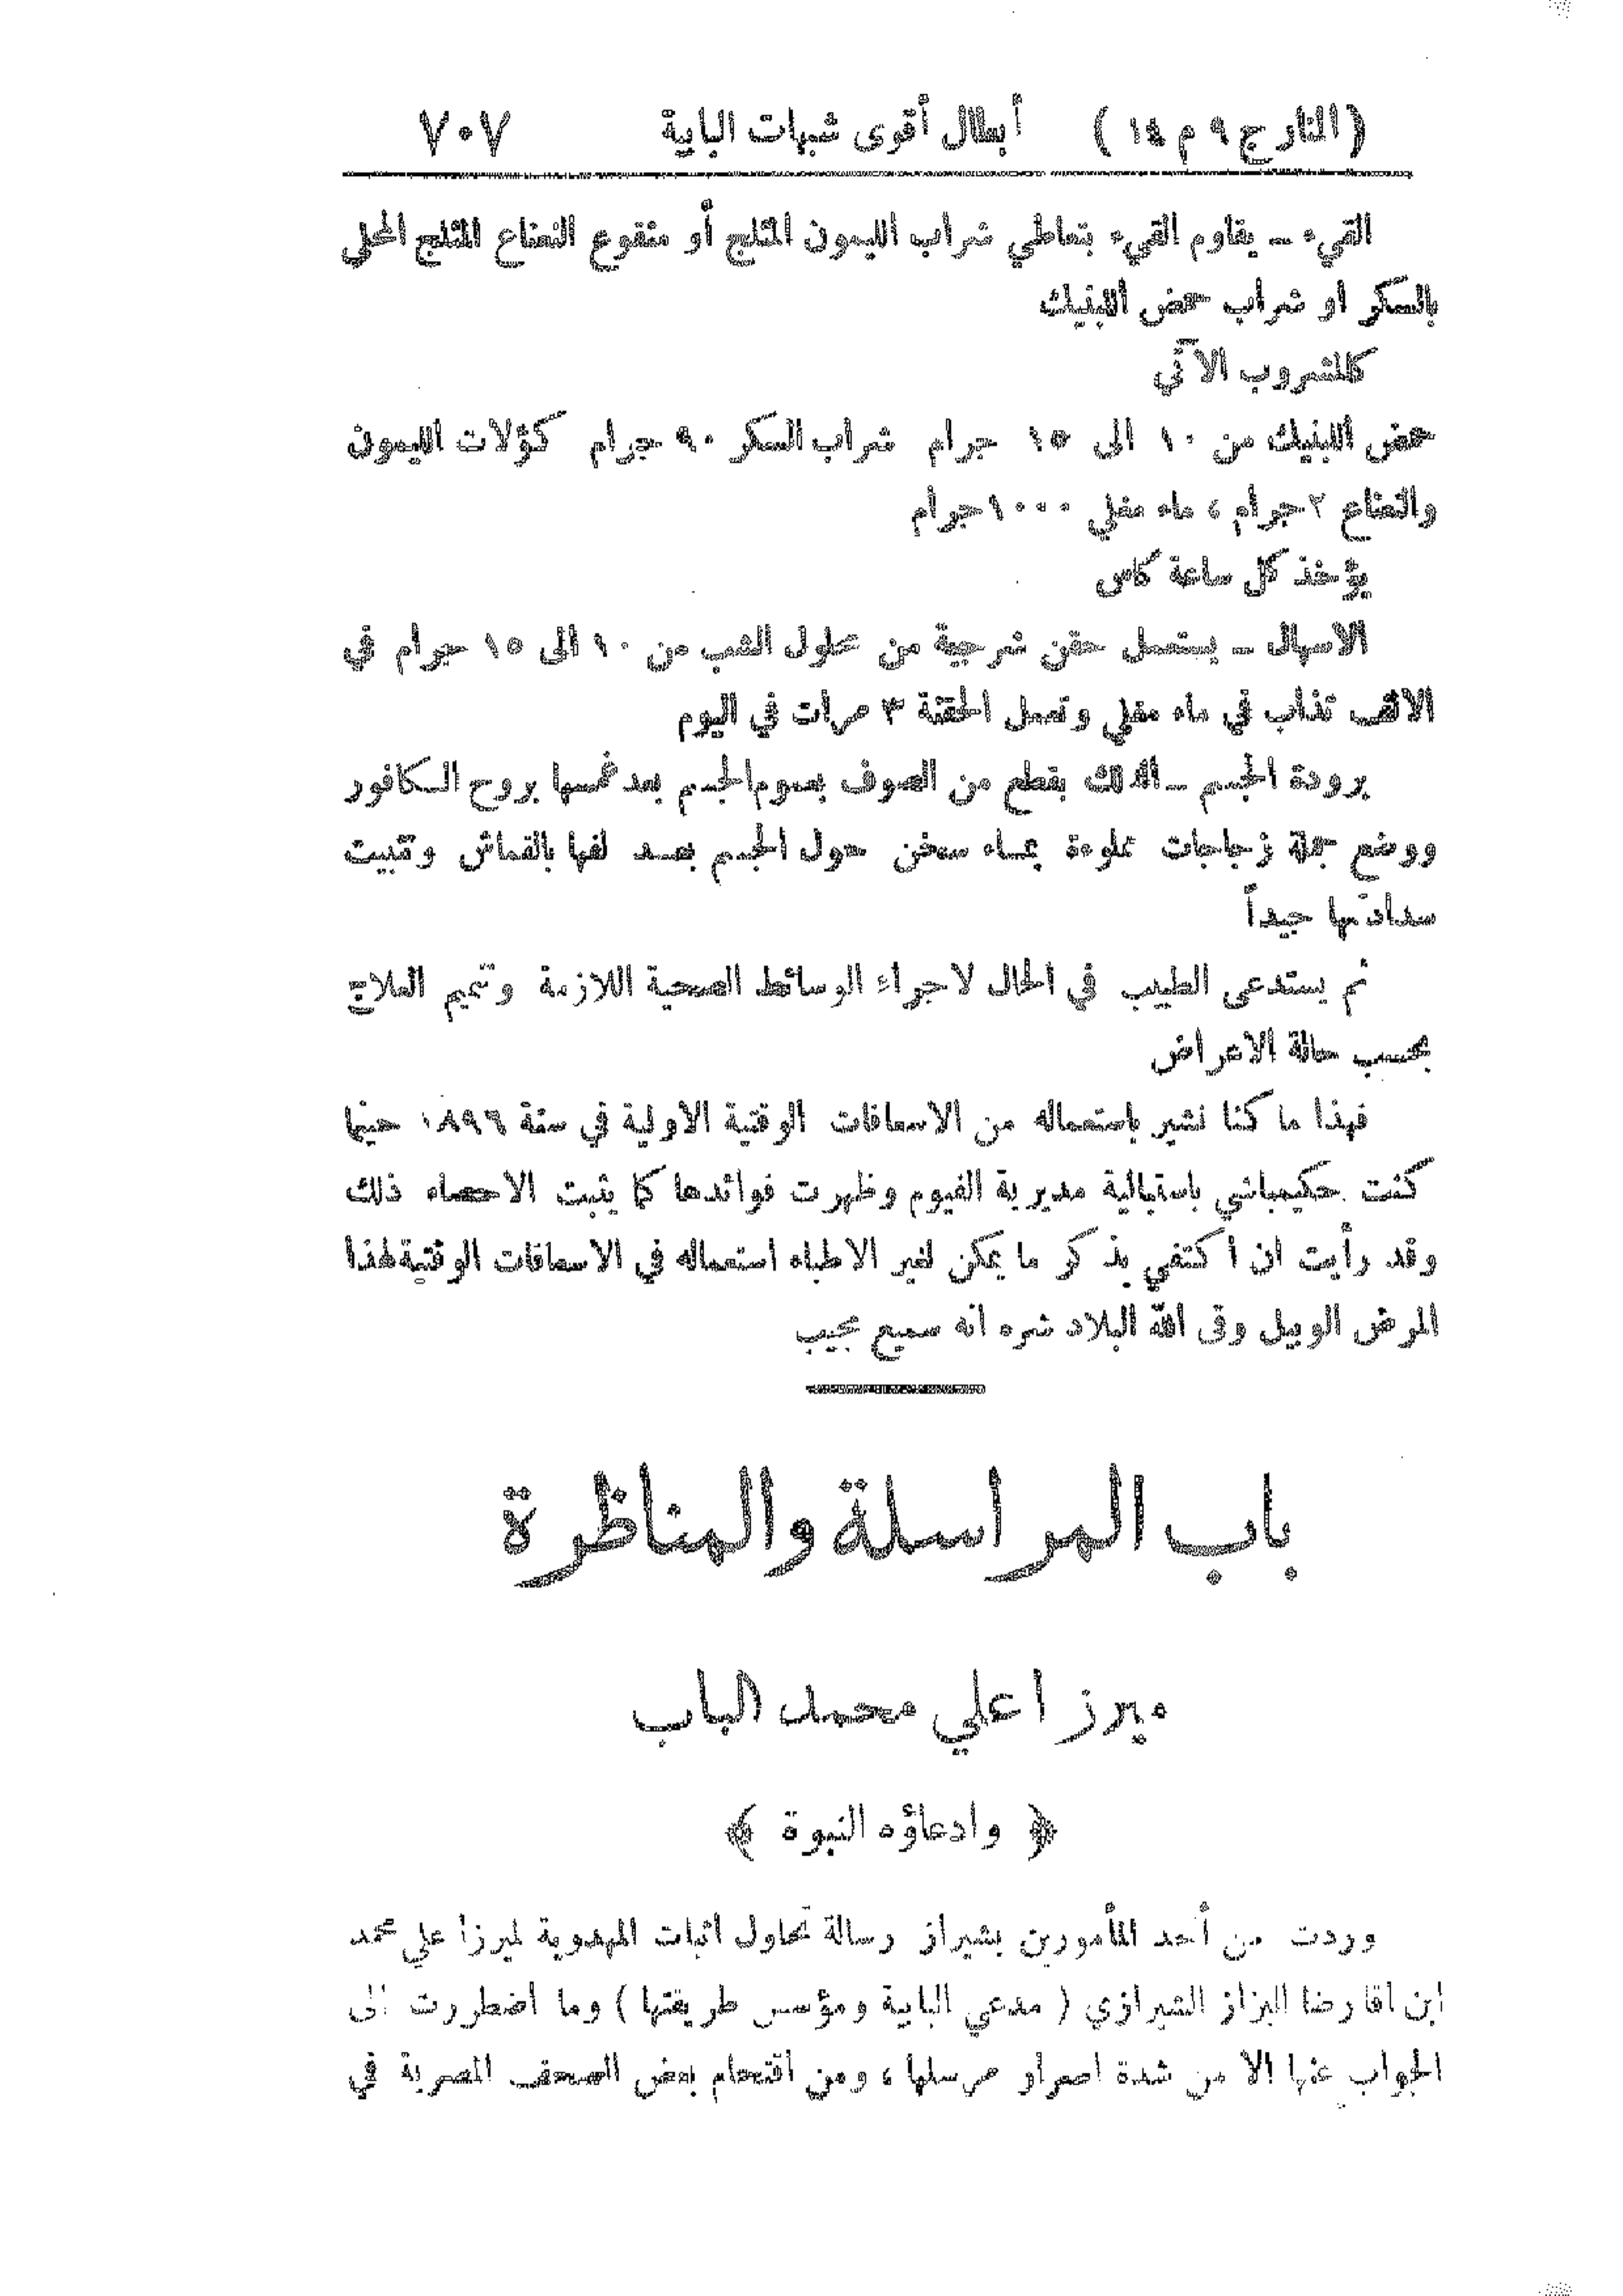 (المنارج ٩ م ١٤) أبطال أقوى شبهات البابية ٧٠٧
القيء ــ يقاوم القيء بتعاطي شراب الليمون المثلج أو منقوع النعناع المثلج المحلى
بالسكر او شراب حمض اللبنيك
كالمشروب الآتي
حمض اللبنيك من ١٠ الى ١٥ جرام شراب السكر ٩٠ جرام كؤلات الليمون
والنعناع ٢ جرام ، ماء مغلي ١٠٠٠ جرام
يؤخذ كل ساعة كاس
الاسهال ــ يستعمل حقن شرجية من محلول الشب من ١٠ الى ١٥ جرام في
الالف تذاب في ماء مغلي وتعمل الحقنة ٣ مرات في اليوم
برودة الجسم ــ الدلك بقطع من الصوف بعموم الجسم بعد غمسها بروح الكافور
ووضع جملة زجاجات مملوءة بماء سخن حول الجسم بعد لفها بالقماش وتثبيت
سدادتها جيداً
ثم يستدعى الطبيب في الحال لاجراء الوسائط الصحية اللازمة وتتميم العلاج
بحسب حالة الاعراض
فهذا ما كنا نشير باستعماله من الاسعافات الوقتية الاولية في سنة ١٨٩٦ حينما
كنت حكيمباشي باستبالية مديرية الفيوم وظهرت فوائدها كما يثبت الاحصاء ذلك
وقد رأيت ان أكتفي بذكر ما يمكن لغير الاطباء استعماله في الاسعافات الوقتية لهذا
المرض الوبيل وقى الله البلاد شره انه سميع مجيب
باب المراسلة والمناظرة
ميرزا علي محمد الباب
﴿ وادعاؤه النبوة ﴾
وردت من أحد المأمورين بشيراز رسالة تحاول اثبات المهدوية لميرزا علي محمد
ابن اقا رضا البزاز الشيرازي ( مدعي البابية ومؤسس طريقتها ) وما اضطررت الى
الجواب عنها الا من شدة اصرار مرسلها ، ومن اقتحام بعض الصحف المصرية في